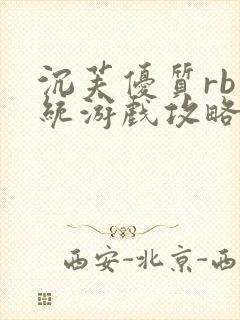 沉芙優質rb
統游戲攻略
西安-北京-西